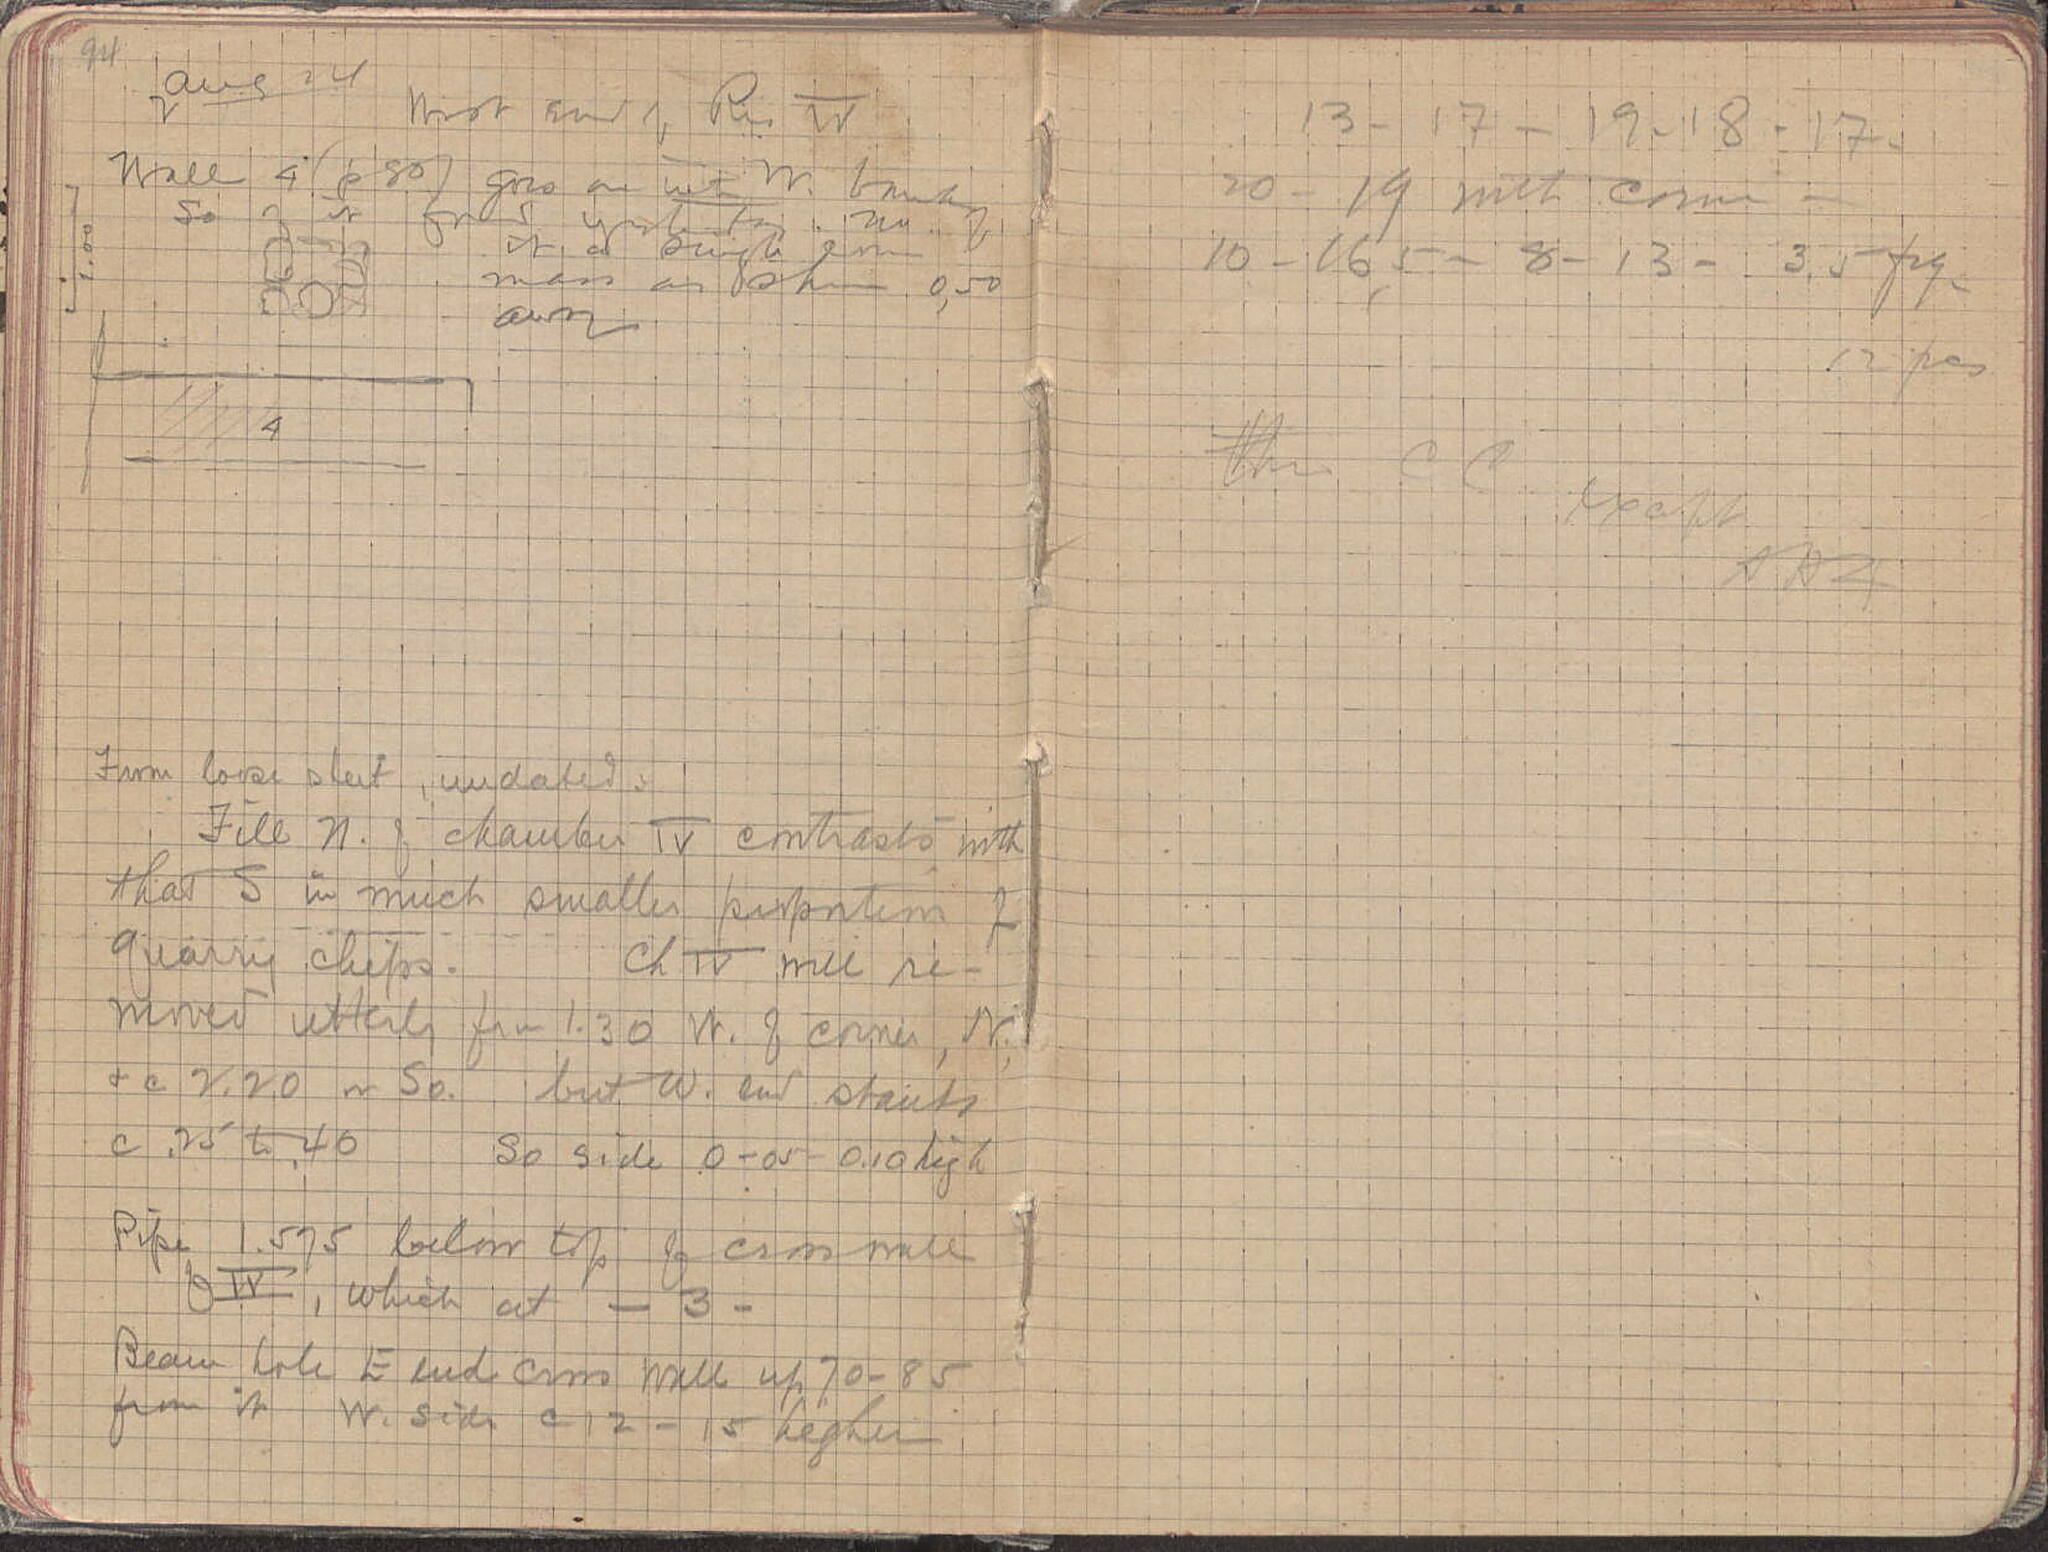 94
Aug 24
West end of Res IV
Wall 4 (p 80) goes on into W. bank
So of it
it a single
mass as 0,50
away
1.00
4
From loose sheet, undated:
Fill N. of chamber IV contrasts with
that S in much smaller proportion of
quarry chips. Ch IV wall re-
moved utterly from 1.30 W. of corner, N.,
+ c 2.20 on So. but W. end stands
c .25 to .40 So side 0-05-0.10 high
Pipe 1.575 below top of cross wall
of IV, which at - 3 -
Beam hole E end cross wall up 70-85
from it W. side c 12-15 higher
13 - 17 - 19 - 18 - 17 -
20 - 19 with corner -
10 - 16,5 - 8 - 13 - 3.5 frg.
12 pcs
CC
except